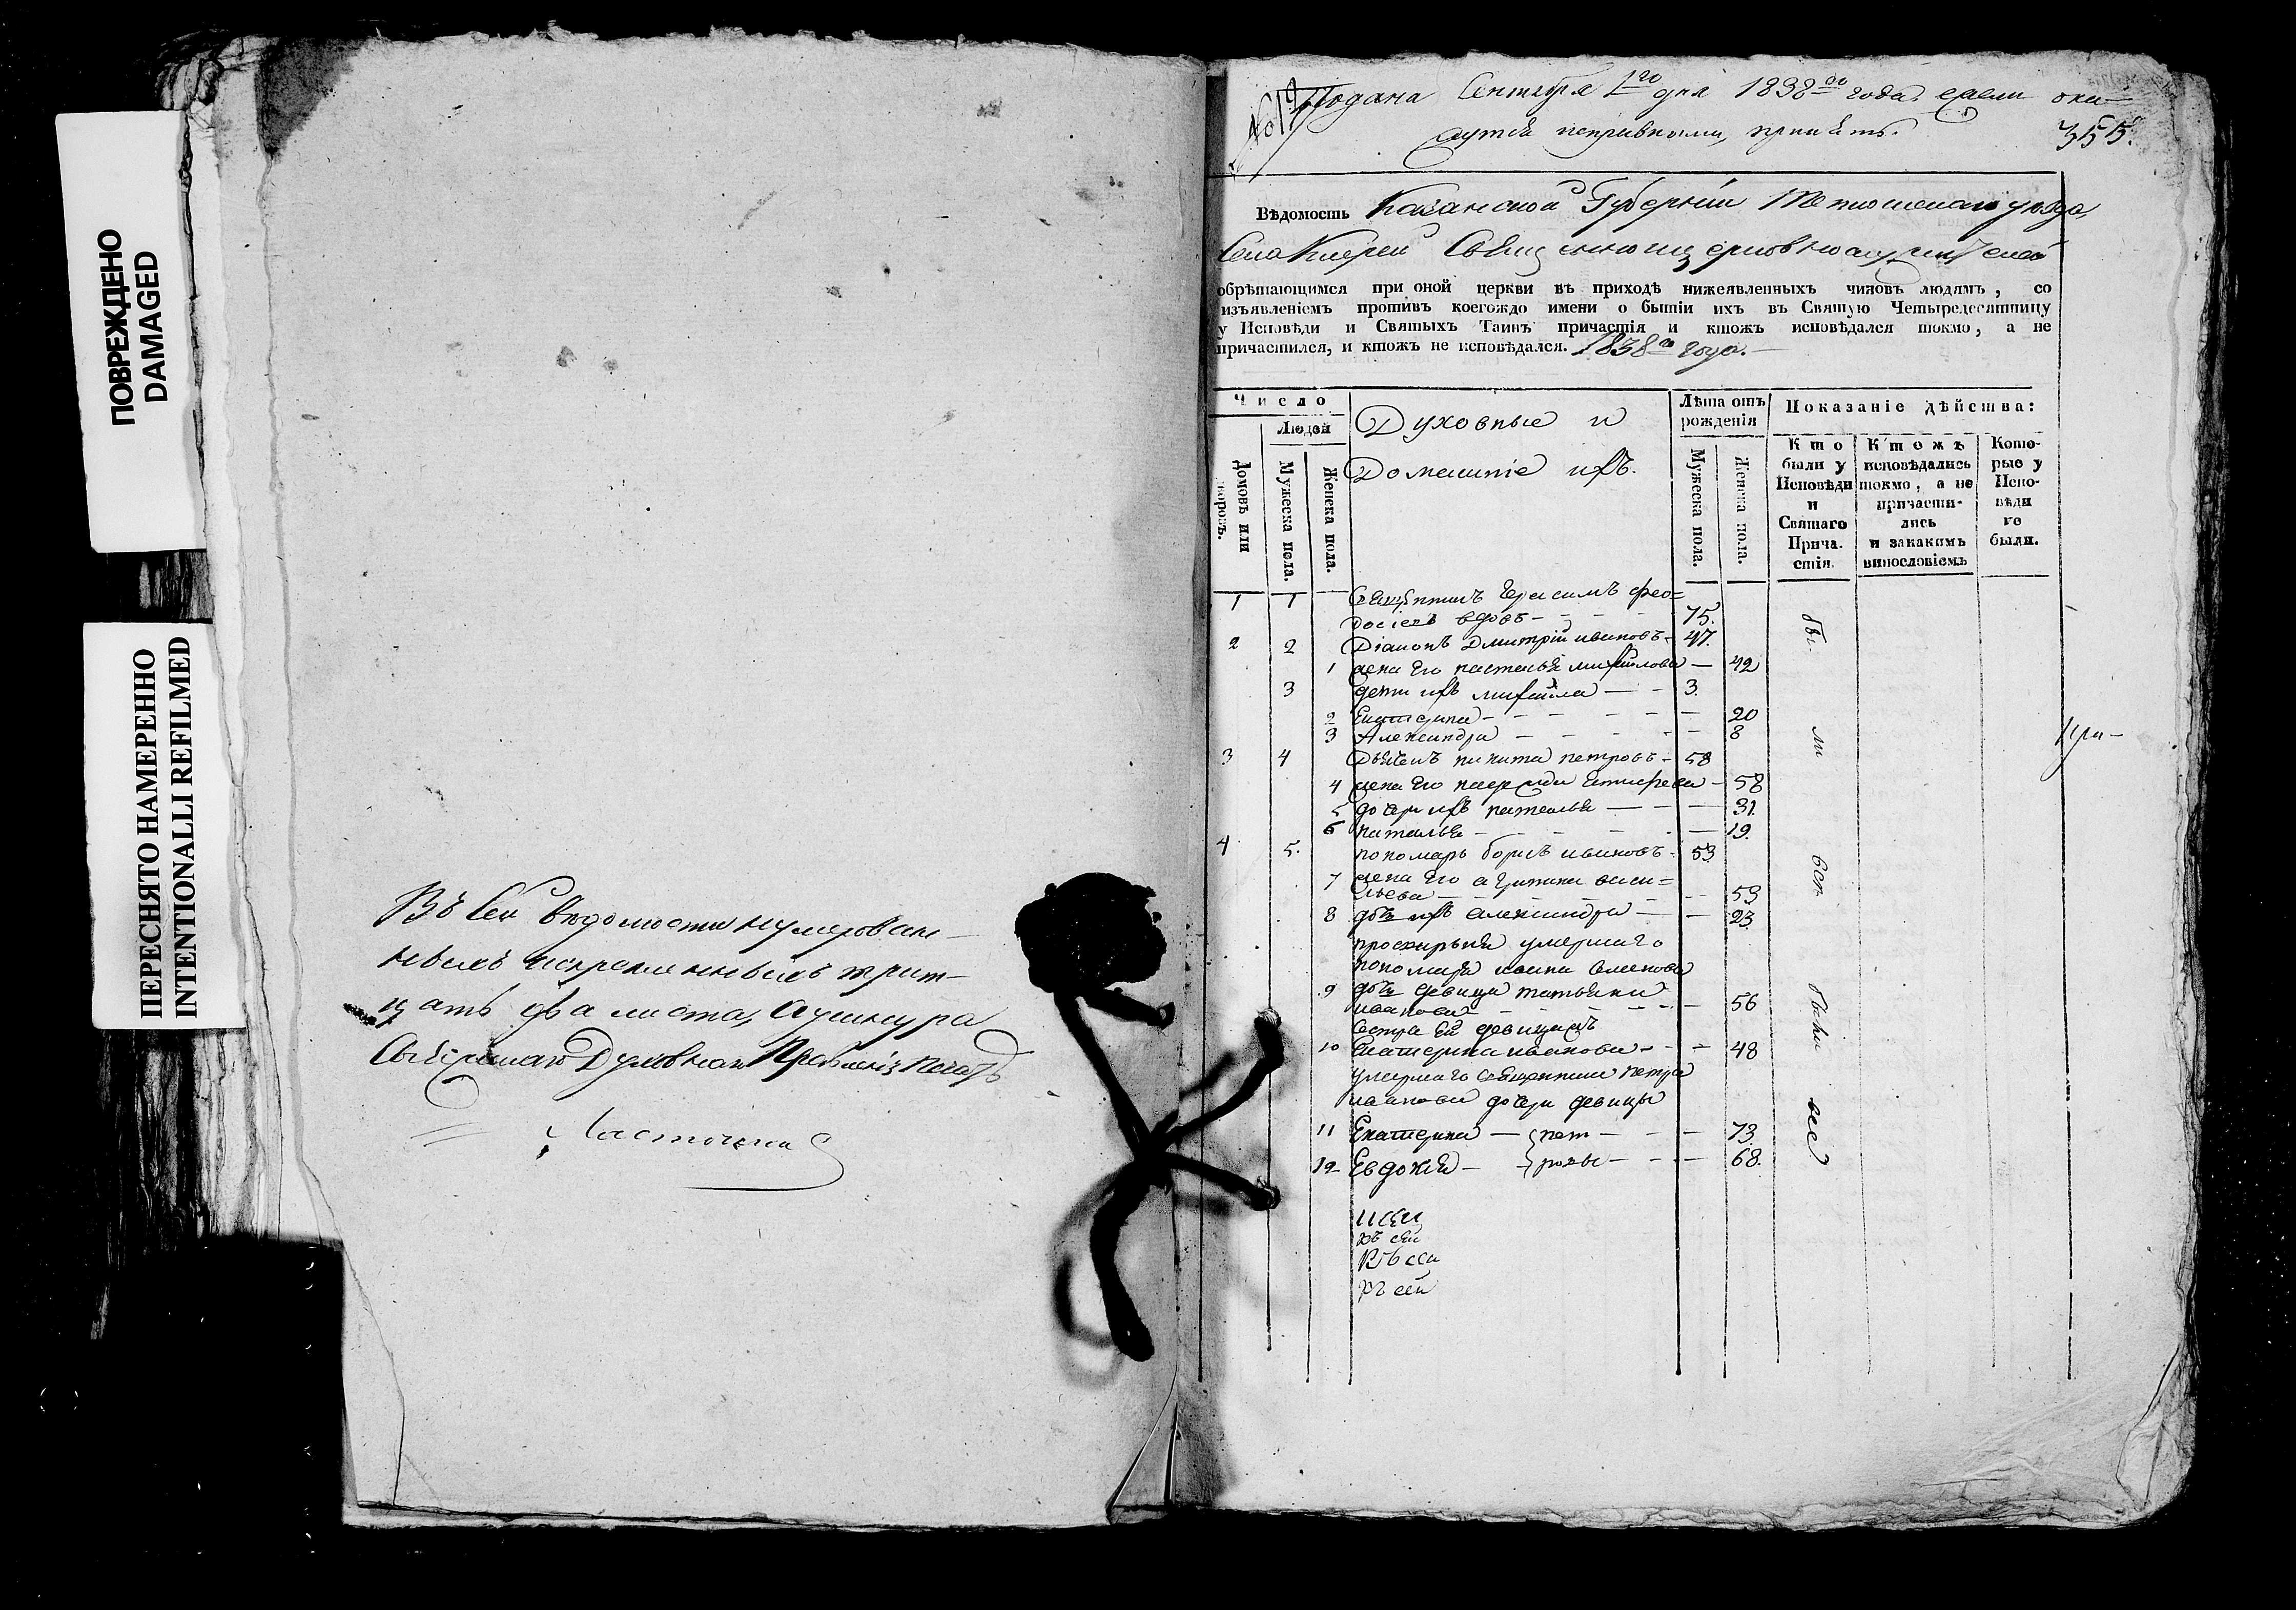 ПОВРЕЖДЕНО
DAMAGED
ПЕРЕСНЯТО НАМЕРЕННО
INTENTIONALLI REFILMED
Въ сей ведомости нумерован-
ныхъ искрепленныхъ трит-
цать два листа,
Духовнаго Правленія печать
Подана Сентября 1го дня 1838го года, если ока-
жутся исправными, принять.
355.
Вѣдомость Казанской Губерніи Тетюшскаго уѣзда,
Села Кирей Священноцерковнослужителей
обрѣтающимся при оной церкви въ приходѣ нижеявленныхъ чиновъ людямъ, со
изъявленіемъ противъ коегождо имени о бытіи ихъ въ Святую Четыредесятницу
у Исповѣди и Святыхъ Таинъ причастія и ктожъ исповѣдался токмо, а не
причастился, и ктожъ не исповѣдался. 1838го года.
Число
Людей
Домовъ или
дворовъ.
Мужеска пола.
Женска пола.
Духовные и
Домашніе ихъ.
Лѣта отъ
рожденія
Мужеска пола.
Женска пола.
Показаніе дѣйства:
Кто
были у
Исповѣди
и
Святаго
Прича-
стія.
Ктожъ
исповѣдались
токмо, а не
причасти-
лись
и закакимъ
винословіемъ
Кото-
рые у
Испо-
вѣди
не
были.
1 1 Священникъ Герасимъ Фео-
досіевъ вдовъ - 75.
2 2 Діаконъ Дмитрій Ивановъ - 47.
1 жена его Наталья Михайлова - 42
3 дети ихъ Михайла - 3.
2 Екатерина - 20
3 Александра - 8
3 4 Дьячекъ Никита Петровъ - 58
4 жена его - 58
5 дочери ихъ Наталья - 31.
6 Наталья - 19.
4 5. Пономарь Борисъ Ивановъ - 53
7 жена его васи=
льева - 53
8 дочь ихъ Александра - 23
просвирьня умершаго
пономаря Ивана Семенова
9 дочь девица Татьяна
Иванова - 56
сестра ей девица
10 Екатерина Иванова - 48
умершаго священника Петра
Иванова дочери девицы
11 Екатерина - пет - 73.
12 Евдокия - ровы - 68.
бы
ли
все
были
все
При-